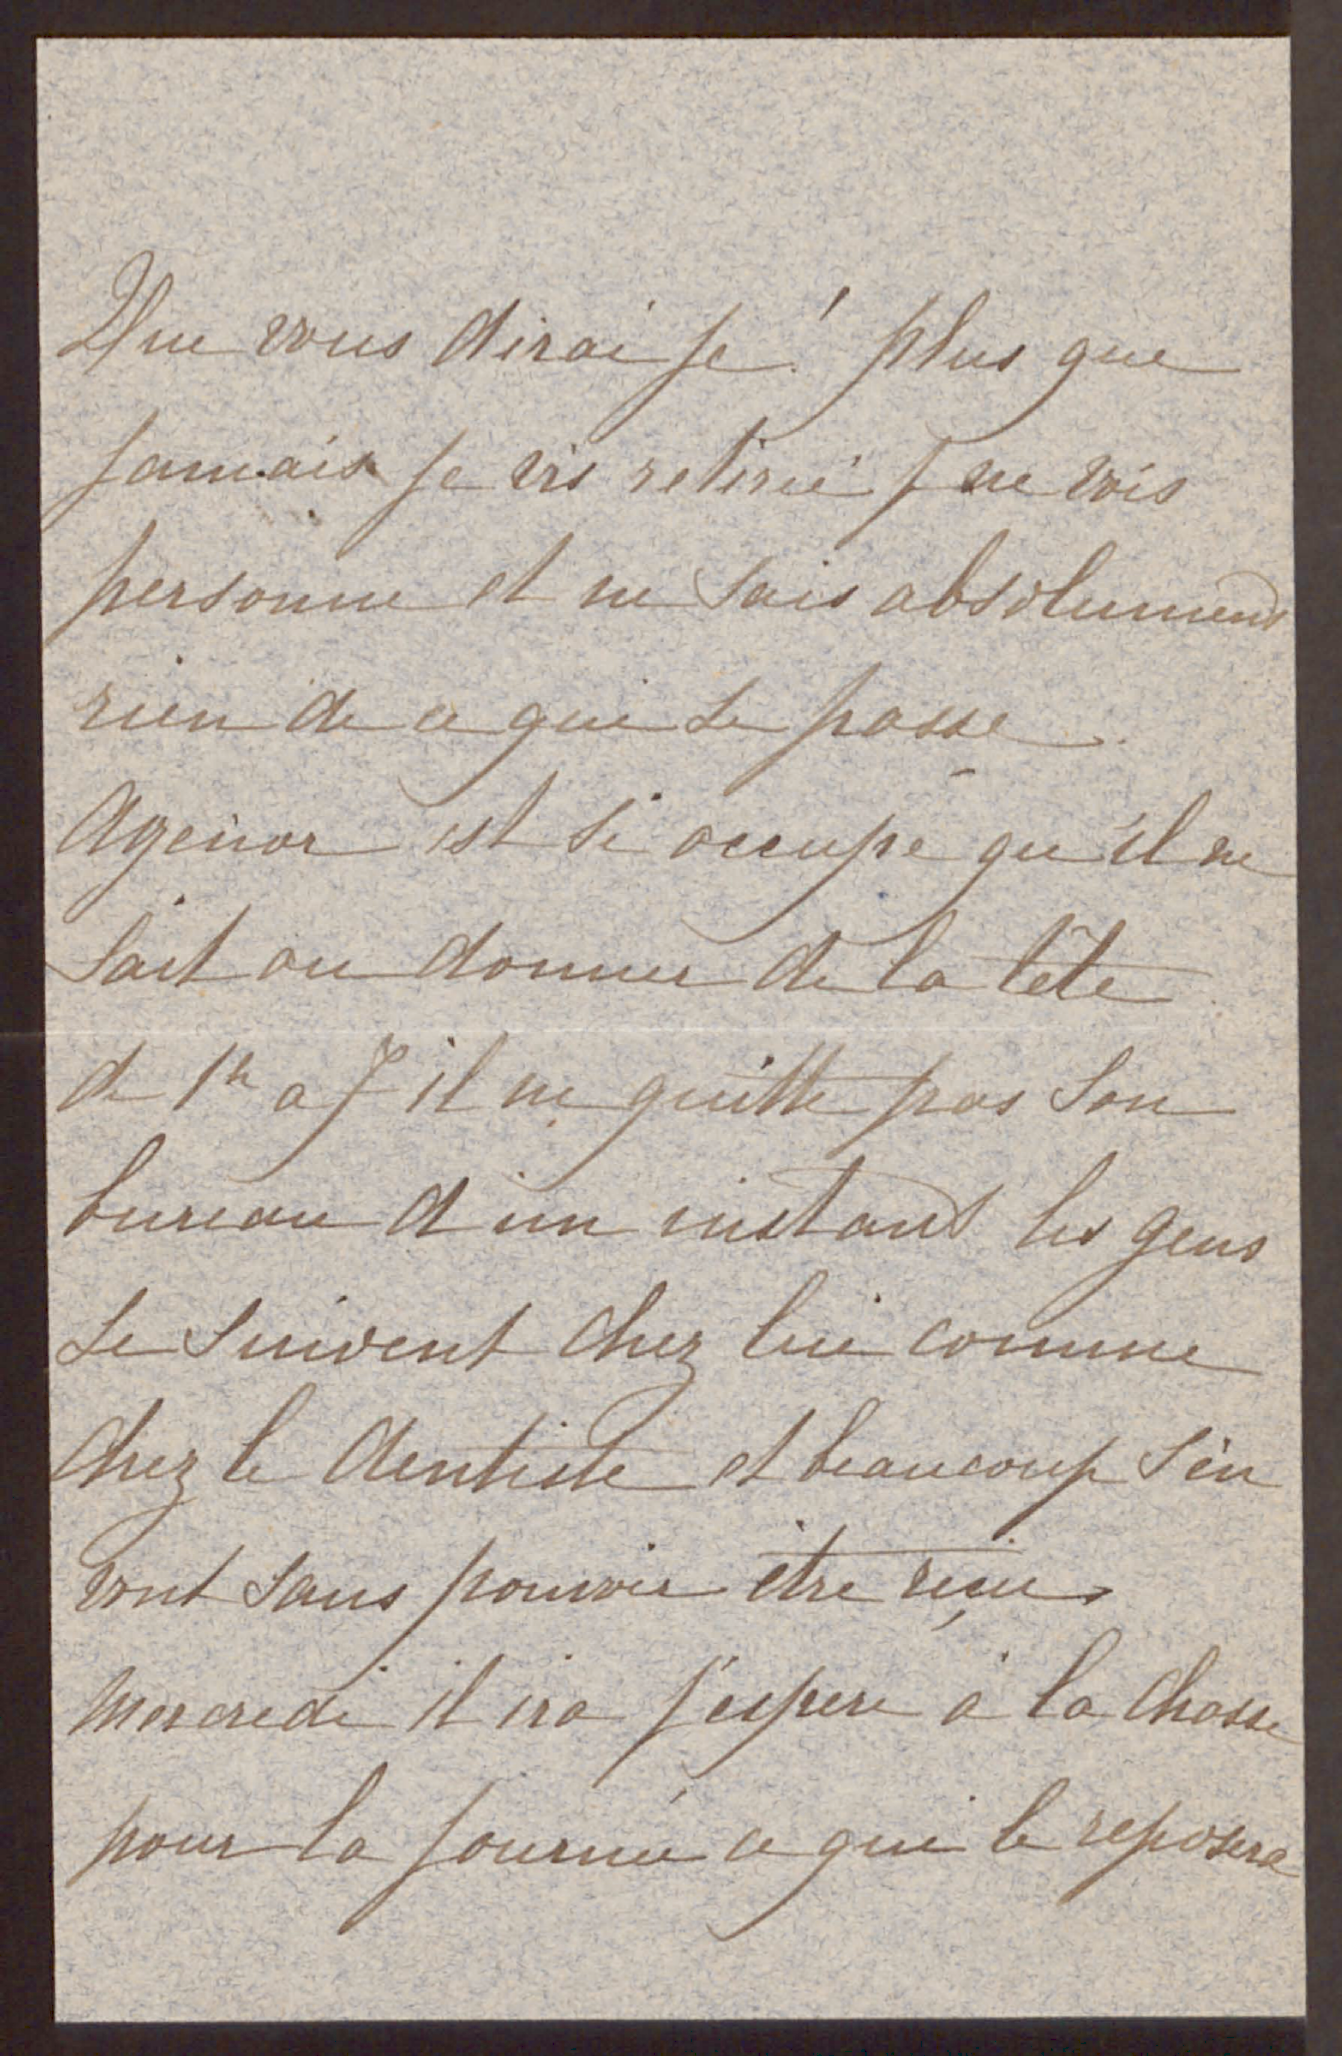 Que vous dirai je! plus que
jamais je vis retirée je ne vois
personne et ne sais absolument
rien de ce qui se passe.
Agénor est si occupé qu'il ne
sait ou donner de la tête
de 1h a 7 il ne quitte pas son
bureau d'un instant les gens
se suivent chez lui comme
chez le dentiste et beaucoup s'en
vont sans pouvoir être reçus
Mercredi il ira j'espere à la chasse
pour la journée ce qui le reposera